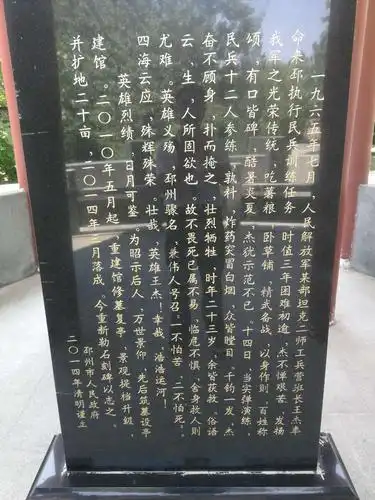 一九六五年七月，人民解放军某部坦克二师工兵营班长王杰奉
命来邳执行民兵训练任务。时值三年困难初逾，杰不惮艰苦，发扬
我军之光荣传统，吃薯根，卧草铺，精武备战，以身作则，百姓称
颂，有口皆碑，酷暑炎夏，杰犹示范不已。十四日，当实弹演练，
民兵十二人参练，孰料，炸药突冒白烟，众皆瞠目，千钧一发，杰
奋不顾身，扑而掩之，壮烈牺牲，时年二十三岁，余皆获救。俗语
云，生，人所固欲也。故不畏死已属不易，临危不惧，舍身救人则
尤难。英雄义殇，邳州骤名，兼伟人号召，一不怕苦，二不怕死。
四海云应，殊辉殊荣。壮哉，英雄王杰！幸哉，浩浩运河！
英雄烈绩，日月可鉴。为昭示后人，万世景仰，先后筑墓设亭
建馆。二〇一〇年五月起，重建馆修墓复亭，景观提档升级，
并扩地二十亩，二〇一四年三月落成。今重新勒石刻碑以志之。
邳州市人民政府
二〇一四年清明谨立